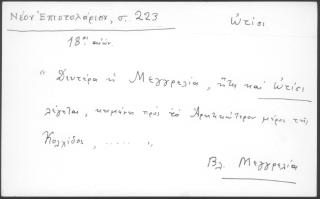 Νέον Ἐπιστολάριον, σ. 223 Ὠτίσι
18ος αἰών.
" Δευτέρα ἡ Μεγγρελία, ἥτις καὶ Ὠτίσι
λέγεται, κειμένη πρὸς τὸ Ἀρκτικώτερον μέρος τῆς
Κολχίδος, ..... "
Βλ. Μεγγρελία